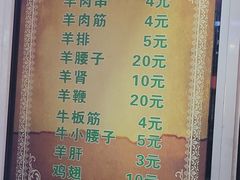 羊肉串 4元
羊肉筋 4元
羊排 5元
羊腰子 20元
羊肾 10元
羊鞭 20元
牛板筋 4元
牛小腰子 5元
羊肝 3元
鸡翅 10元